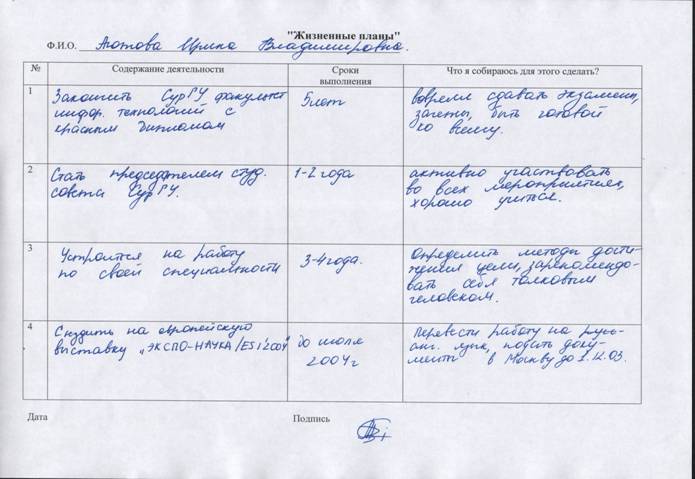 "Жизненные планы"
Ф.И.О. Ирина Владимировна.
№ Содержание деятельности Сроки выполнения Что я собираюсь для этого сделать?
1
Закончить СурГУ факультет
информ. технологий с
красным дипломом
5 лет
вовремя сдавать экзамены,
зачеты, быть готовой
ко всему.
2
Стать председателем студ.
совета СурГУ.
1-2 года
активно участвовать
во всех мероприятиях,
хорошо учиться.
3
Устроиться на работу
по своей специальности
3-4 года.
Определить методы дости-
жения цели, зарекомендо-
вать себя толковым
человеком.
4
Съездить на европейскую
выставку „ЭКСПО-НАУКА/ESI2004"
до июля
2004 г
Перевести работу на русс-
анг. язык, подать доку-
менты в Москву до 1.12.03.
Дата Подпись